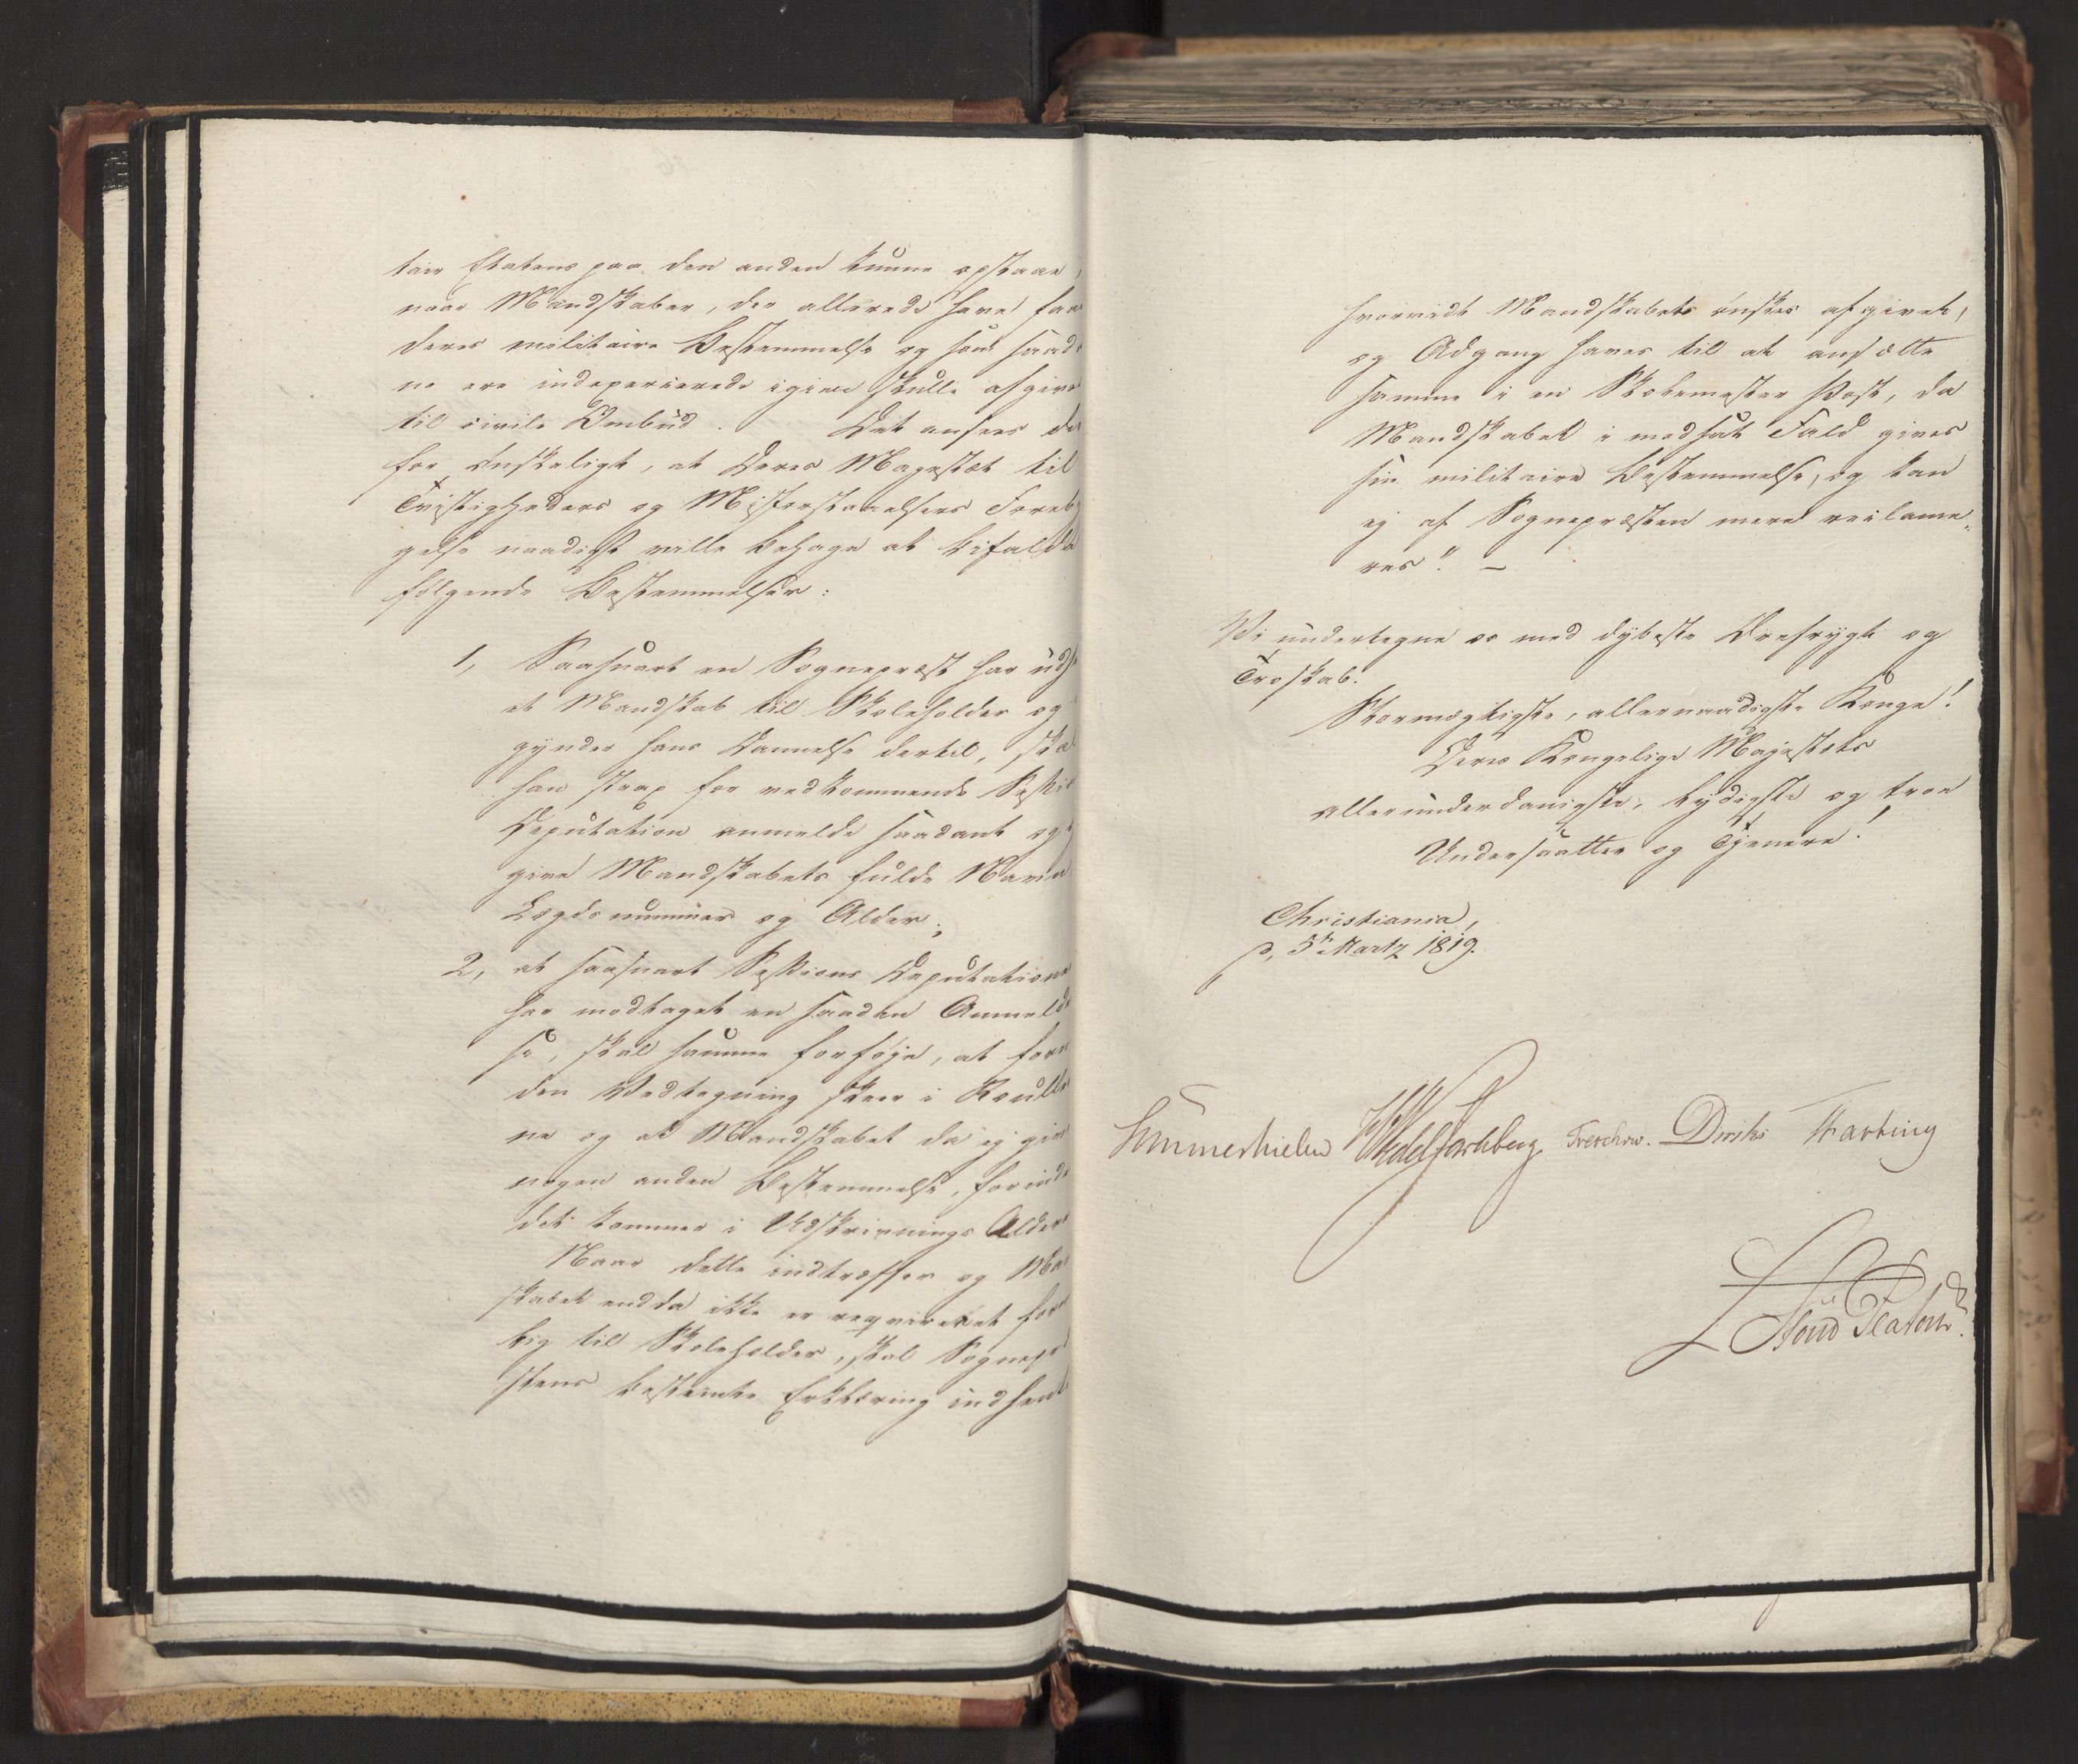 tair Etatens paa den anden kunne opstaae,
naar Mandskaber, der allerede have faa
deres militaire Bestemmelse og som saad
ne ere indexercerede igien skulle afgives
til civile Ombud. Det ansees de
for ønskeligt, at Deres Majestæt til
Tvistigheders og Misforstaaelsers Foreby
gelse naadigst ville behage at bifalde
følgende Bestemmelser:
1, Saasnart en Sognepræst har uds
et Mandskab til Skoleholder og
gynder hans Dannelse dertil, skal
han strax for vedkommende Sessio
Deputation anmelde saadant og
give Mandskabets fulde Navn
Lægds nummer og Alder;
2, at saasnart Sessions Deputationen
har modtaget en saadan Anmeld
se, skal samme forføje, at forn
den Vedtegning skeer i Roulle
ne og at Mandskabet da ej giv
nogen anden Bestemmelse, forind
det kommer i Udskrivnings Alder
Naar dette indtræffer og Man
skabet endda ikke er requireret for
big til Skoleholder, skal Sognep
stens bestemte Erklæring indhent
hvorvidt Mandskabets ønskes afgivet,
og Adgang haves til at ansætte
samme i en Skolemester Post, da
Mandskabet i modsat Fald gives
sin militaire Bestemmelse, og kan
ej af Sognepræsten mere reclame„
res". —
Vi undertegne os med dybeste Ærefrygt og
Troskab.
Stormægtigste, allernaadigste Konge!
Deres Kongelige Majestæts
allerunderdanigste, lydigste og troe
Undersaatter og Tjenere!
Christiania,
d, 5te Martz 1819.
Sommerhielm HWedel Jarlsberg Treschow. Diriks Fasting